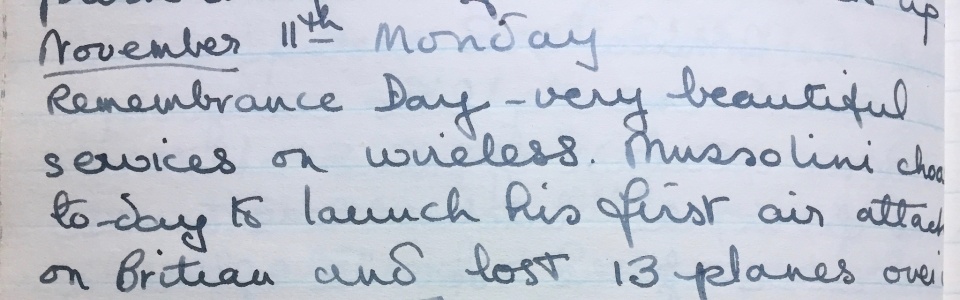 up
November 11th Monday
Remembrance Day - very beautiful
services on wireless. Mussolini
to-day to launch his first air attack
on Britian and lost 13 planes over